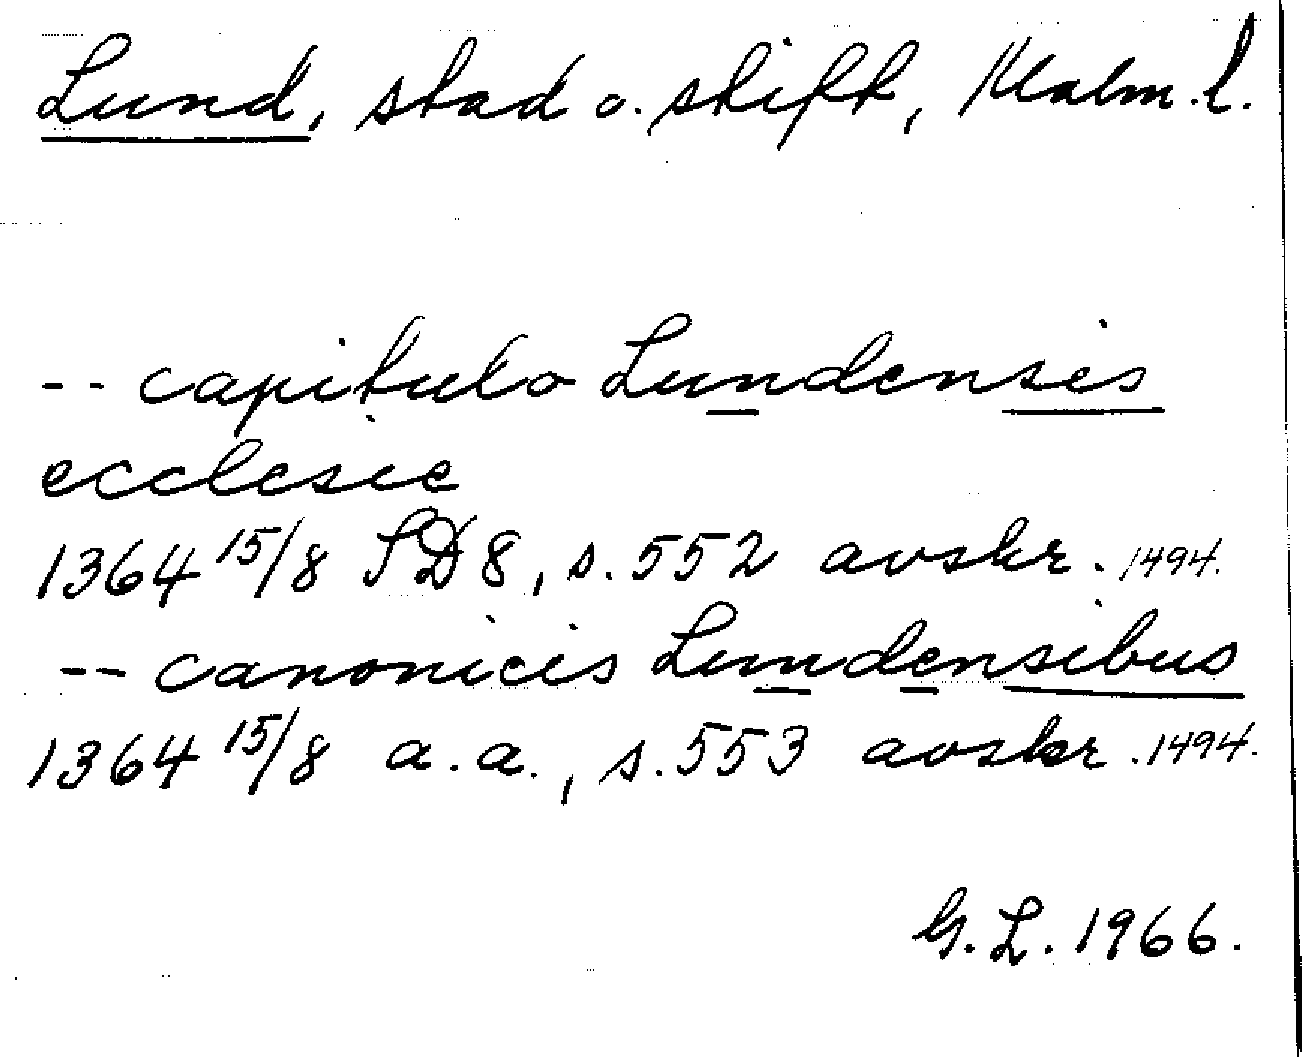 Lund, stad o. stift, Malm. l.
-- capitulo Lundensis
ecclesie
1364 15/8 SD 8, s. 552 avskr. 1494.
-- canonicis Lundensibus
1364 15/8 a. a., s. 553 avskr. 1494.
G. L. 1966.